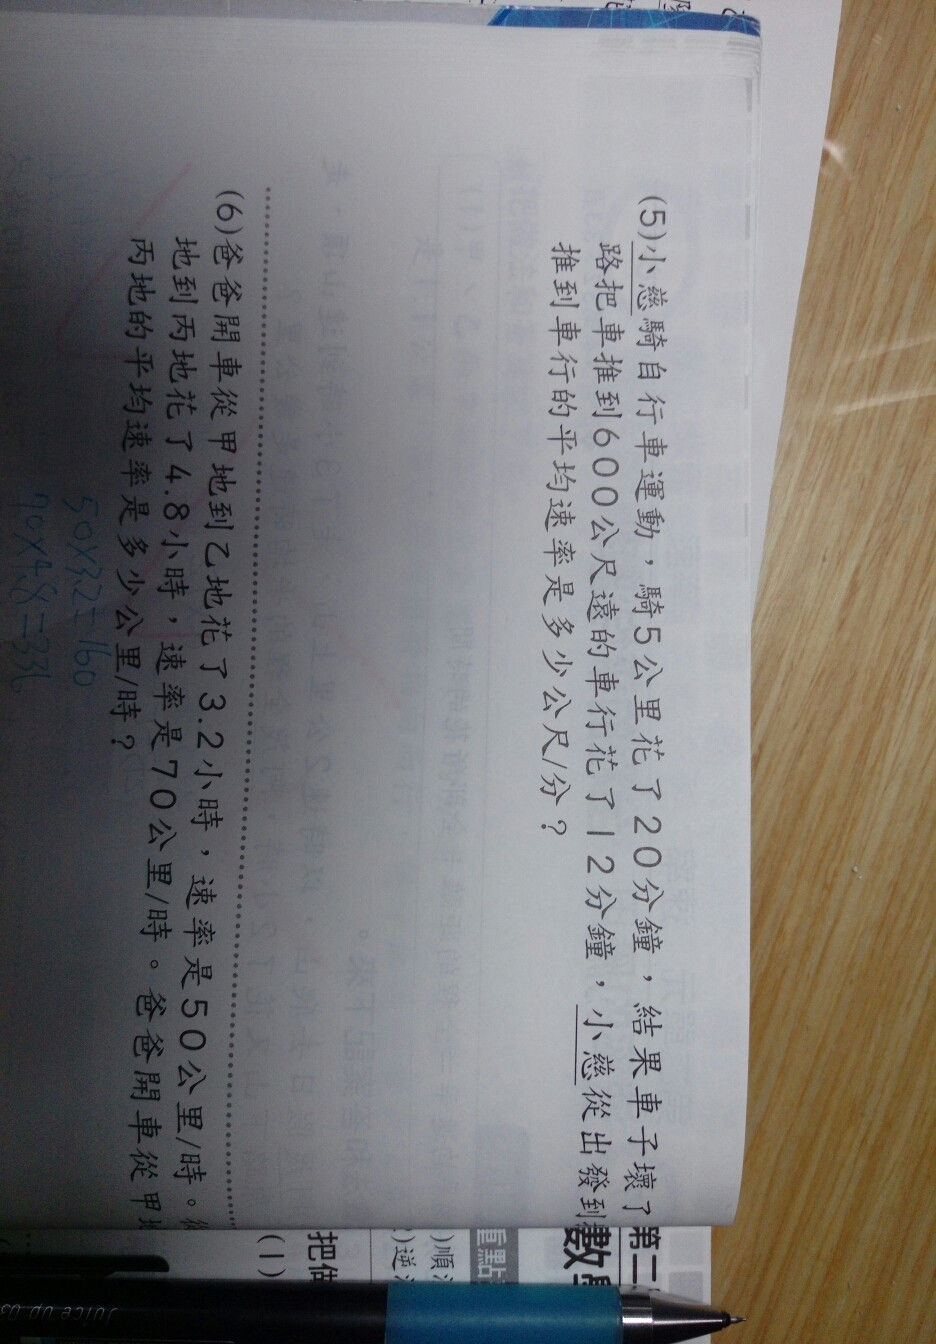 (5)小慈騎自行車運動，騎5公里花了20分鐘，結果車子壞了
路把車推到600公尺遠的車行花了12分鐘，小慈從出發到
推到車行的平均速率是多少公尺/分？
(6)爸爸開車從甲地到乙地花了3.2小時，速率是50公里/時。從
地到丙地花了4.8小時，速率是70公里/時。爸爸開車從甲地
丙地的平均速率是多少公里/時？
50×3.2=160
70×4.8=336
第二
數
重點
)順
)逆
把
(1)
Juice up 03